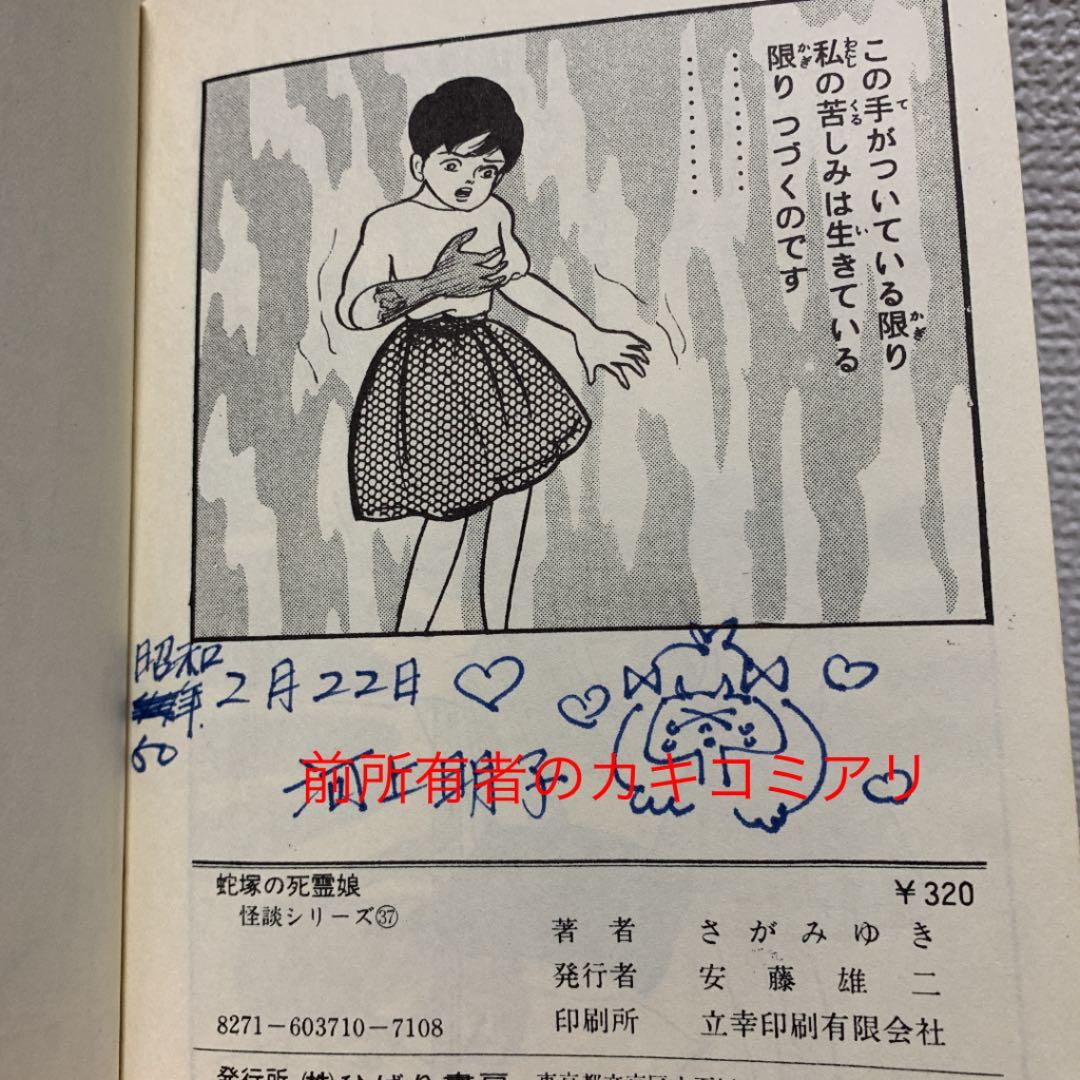 この手がついている限り
私の苦しみは生きている
限りつづくのです
…………
…………
昭和
年
50
2月22日
前所有者のカキコミアリ
蛇塚の死霊娘
怪談シリーズ㊲
¥320
著者 さがみゆき
発行者 安藤雄二
印刷所 立幸印刷有限会社
8271-603710-7108
発行所 (株)ひばり書房